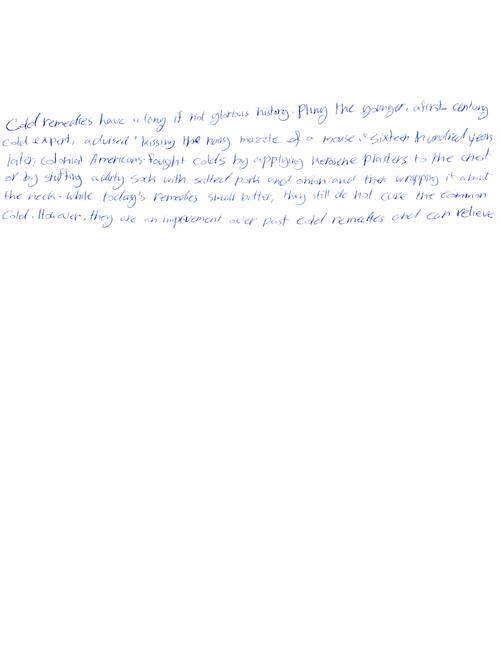 Cold remedies have a long if not glorious history. Pliny the younger, a first century
cold expert, advised "kissing the hairy muzzle of a mouse." Sixteen hundred years
later, colonial Americans fought colds by applying kerosene plasters to the chest
or by stuffing a dirty sock with salted pork and onion and then wrapping it about
the neck. While today's remedies small better, they still do not cure the common
cold. However, they are an improvement over past cold remedies and can relieve